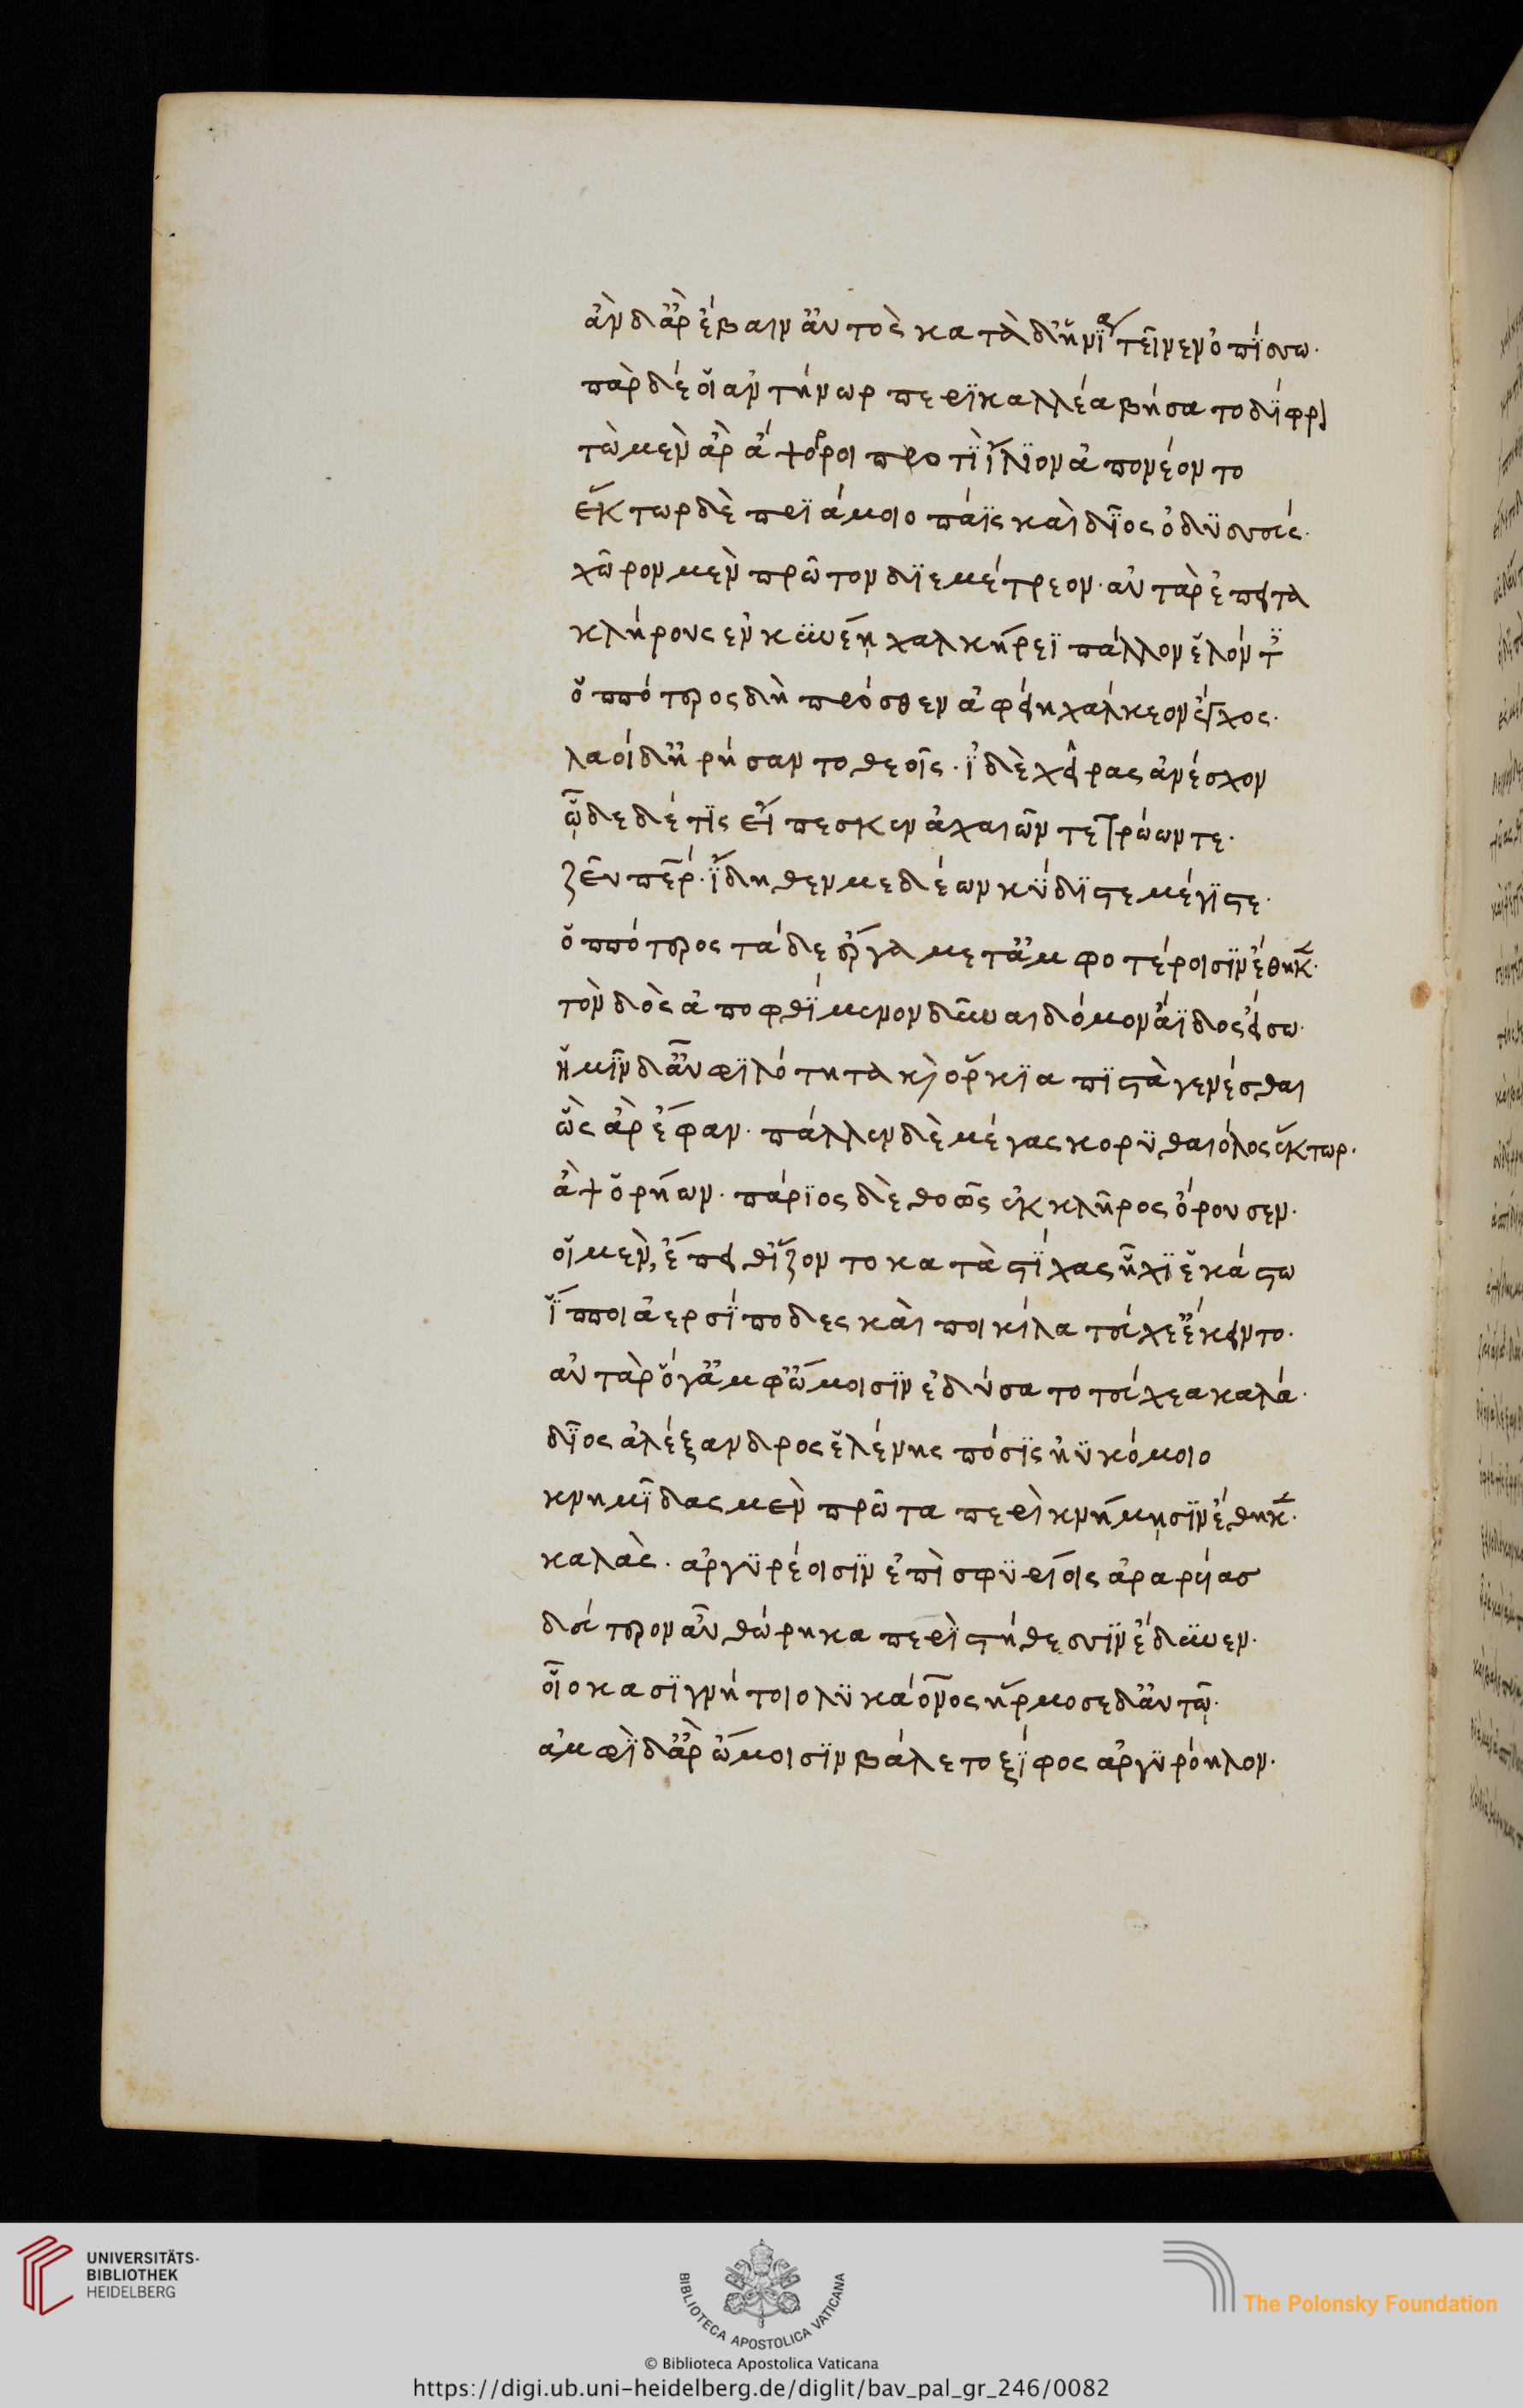 ἂν δ' ἂρ ἔβαιν' αὐτὸς κατὰ δ' ἡνία τεῖνεν ὀπίσσω·
πὰρ δέ οἱ ἀντήνωρ περικαλλέα βήσατο δίφρον
τὼ μὲν ἂρ ἄψορροι προτὶ ἴλιον ἀπονέοντο
ἕκτωρ δὲ πριάμοιο πάϊς καὶ δῖος ὀδυσσεύς·
χῶρον μὲν πρῶτον διεμέτρεον· αὐτὰρ ἔπειτα
κλήρους ἐν κυνέῃ χαλκήρεϊ πάλλον ἑλόντες
ὁππότερος δὴ πρόσθεν ἀφείη χάλκεον ἔγχος·
λαοὶ δ' ἠρήσαντο θεοῖς· ἰδὲ χεῖρας ἀνέσχον
ὧδε δέ τις εἴπεσκεν ἀχαιῶν τε τρώων τε·
ζεῦ πάτερ· ἴδηθεν μεδέων κύδιστε μέγιστε·
ὁππότερος τάδε ἔργα μετ' ἀμφοτέροισιν ἔθηκεν·
τὸν δὸς ἀποφθίμενον δῦναι δόμον ἄϊδος εἴσω·
ἡμῖν δ' αὖ φιλότητα καὶ ὅρκια πιστὰ γενέσθαι
ὣς ἂρ ἔφαν· πάλλεν δὲ μέγας κορυθαιόλος ἕκτωρ·
ἂψ ὁρόων· πάριος δὲ θοῶς ἐκ κλῆρος ὄρουσεν·
οἱ μὲν, ἔπειθ' ἵζοντο κατὰ στίχας ἧχι ἑκάστω
ἵπποι ἀερσίποδες καὶ ποικίλα τεύχε' ἔκειντο·
αὐτὰρ ὅγ' ἀμφ' ὤμοισιν ἐδύσατο τεύχεα καλά·
δῖος ἀλέξανδρος ἑλένης πόσις ἠϋκόμοιο
κνημῖδας μὲν πρῶτα περὶ κνήμῃσιν ἔθηκεν·
καλὰς· ἀργυρέοισιν ἐπὶ σφυρίοις ἀραρυίας
δεύτερον αὖ θώρηκα περὶ στήθεσσιν ἔδυνεν·
οἷο κασιγνήτοιο λυκάονος ἥρμοσε δ' αὐτῷ·
ἀμφὶ δ' ἂρ ὤμοισιν βάλετο ξίφος ἀργυρόηλον·
UNIVERSITÄTS-
BIBLIOTHEK
HEIDELBERG
BIBLIOTECA APOSTOLICA VATICANA
The Polonsky Foundation
© Biblioteca Apostolica Vaticana
https://digi.ub.uni-heidelberg.de/diglit/bav_pal_gr_246/0082